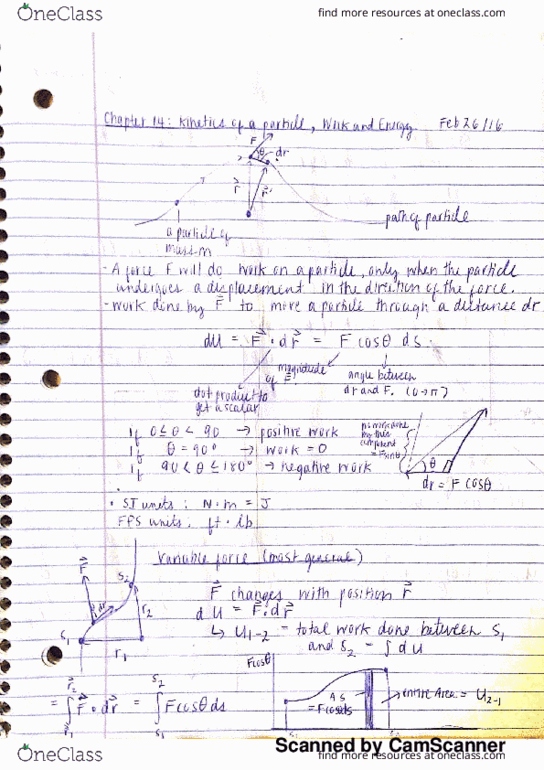 OneClass
find more resources at oneclass.com
Chapter 14: Kinetics of a particle, Work and Energy Feb 26/16
F
θ dr
r r'
path of particle
a particle of
mass m
- A force F will do work on a particle, only when the particle
undergoes a displacement in the direction of the force.
- work done by F⃗ to move a particle through a distance dr
dU = F⃗ · dr⃗ = F cosθ ds
magnitude
of F
angle between
dr and F. (0→π)
dot product to
get a scalar
If 0 ≤ θ < 90 → positive work
If θ = 90° → work = 0
If 90 < θ ≤ 180° → negative work
no work done
by this
component
= F sinθ
θ
dr = F cosθ
• SI units: N·m = J
FPS units: ft · lb
Variable force (most general)
F⃗ changes with position r⃗
dU = F⃗ · dr⃗
↳ U₁₋₂ = total work done between S₁
and S₂ = ∫ dU
F⃗
S₂
dr
r₂
S₁
r₁
Fcosθ
= ∫ F⃗ · dr⃗ = ∫ F cosθ ds
r₂ S₂
r₁ S₁
= Fcosθds
entire Area = U₂₋₁
Scanned by CamScanner
OneClass
find more resources at oneclass.com